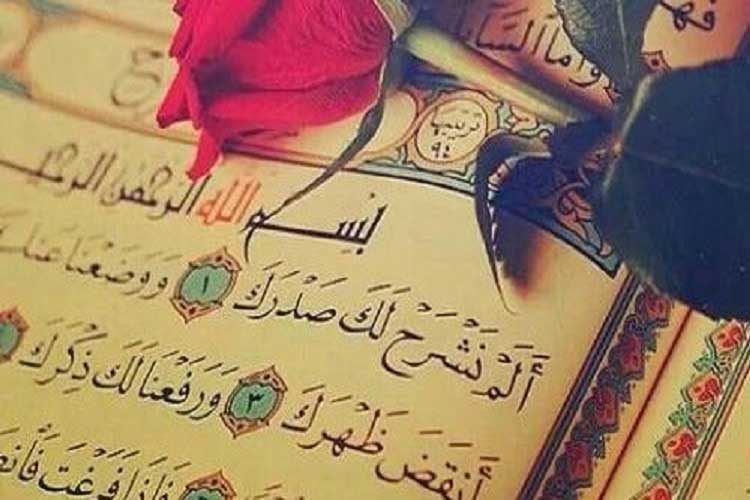 وَأَمَّا ٱلسَّائِلَ
ترتيبها
٩٤
بِسْمِ اللهِ الرَّحْمٰنِ الرَّحِيمِ
أَلَمْ نَشْرَحْ لَكَ صَدْرَكَ ١ وَوَضَعْنَا عَنكَ
أَنقَضَ ظَهْرَكَ ٣ وَرَفَعْنَا لَكَ ذِكْرَكَ
فَإِذَا فَرَغْتَ